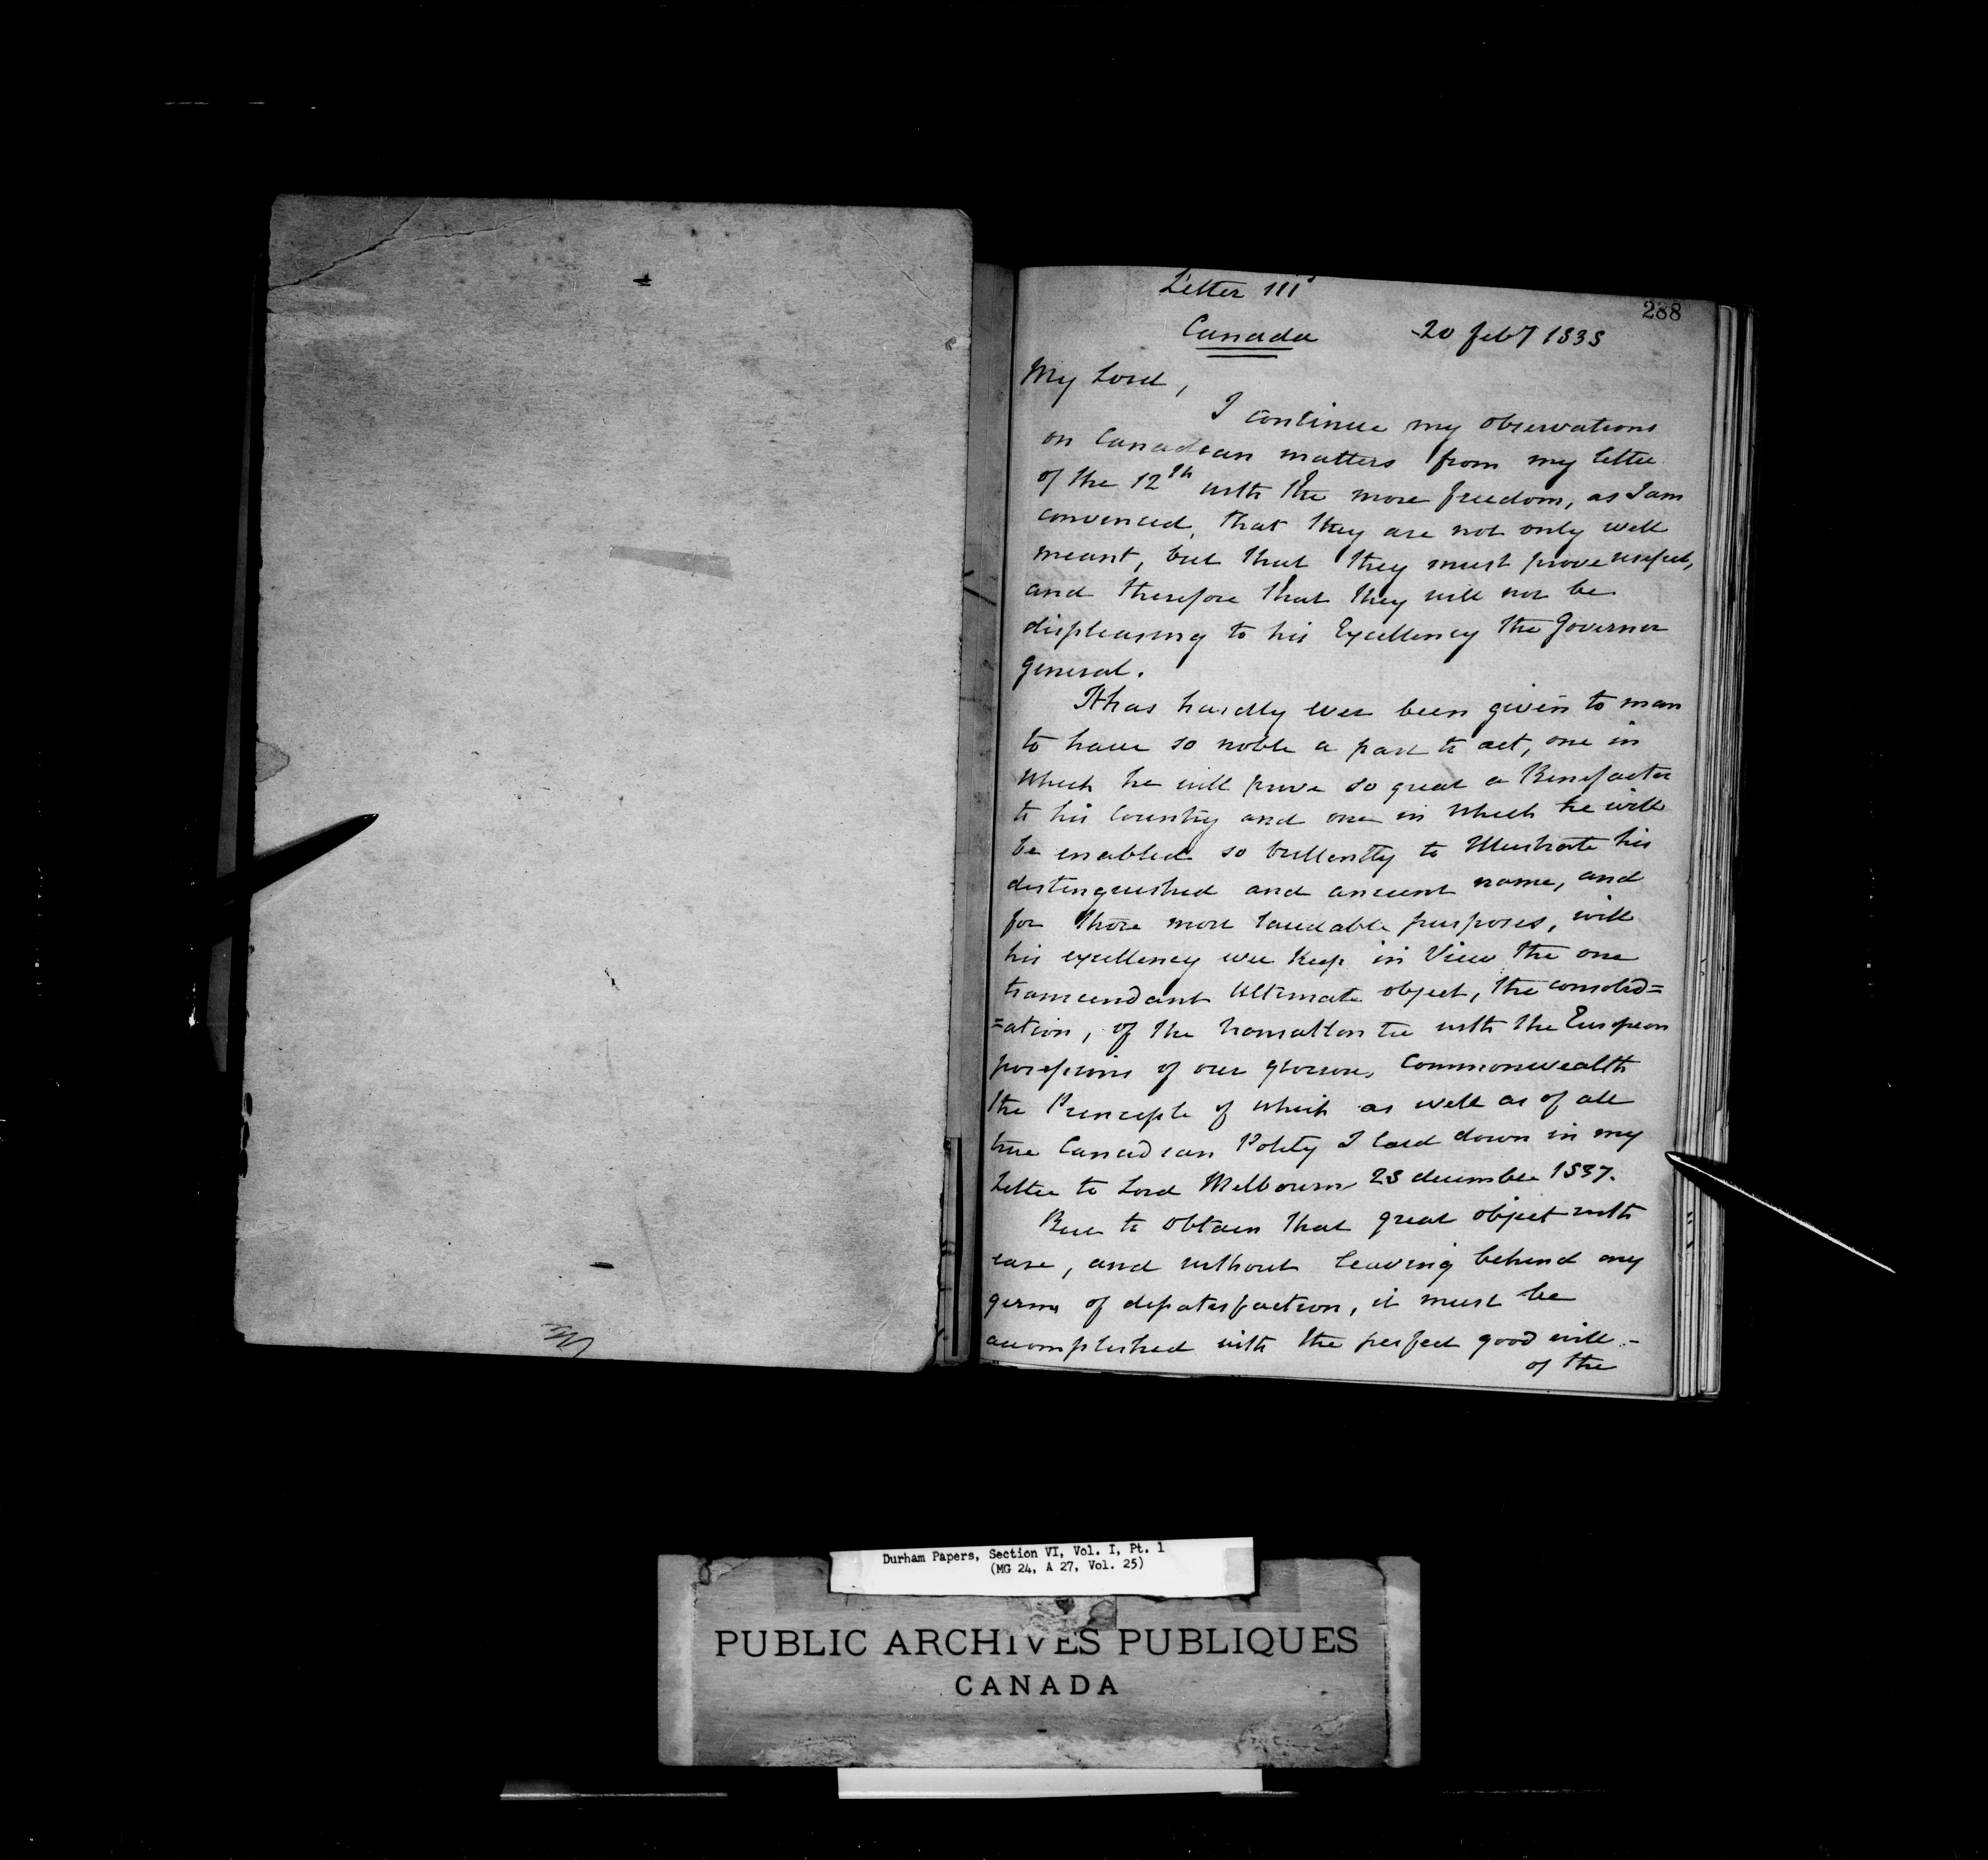 Letter IIId
288
Canada 20 feby 1838
My Lord,
I continue my observations
on Canadian matters from my letter
of the 12th with the more freedom, as I am
convinced, that they are not only well
meant, but that they must prove useful,
and therefore that they will not be
displeasing to his Excellency the Governor
General.
It has hardly ever been given to man
to have so noble a part to act, one in
which he will prove so great a Benefactor
to his Country and one in which he will
be enabled so brilliantly to Illustrate his
distinguished and ancient name, and
for those most laudable purposes, will
his excellency ever keep in View the one
transcendant Ultimate object, the consolid=
=ation, of the transatlantic tie with the European
possessions of our glorious Commonwealth
the Principle of which as well as of all
true Canadian Polity I laid down in my
Letter to Lord Melbourne 28 december 1837.
But to obtain that great object with
ease, and without leaving behind any
germs of dissatisfaction, it must be
accomplished with the perfect good will -
of the
Durham Papers, Section VI, Vol. I, Pt. 1
(MG 24, A 27, Vol. 25)
PUBLIC ARCHIVES PUBLIQUES
CANADA